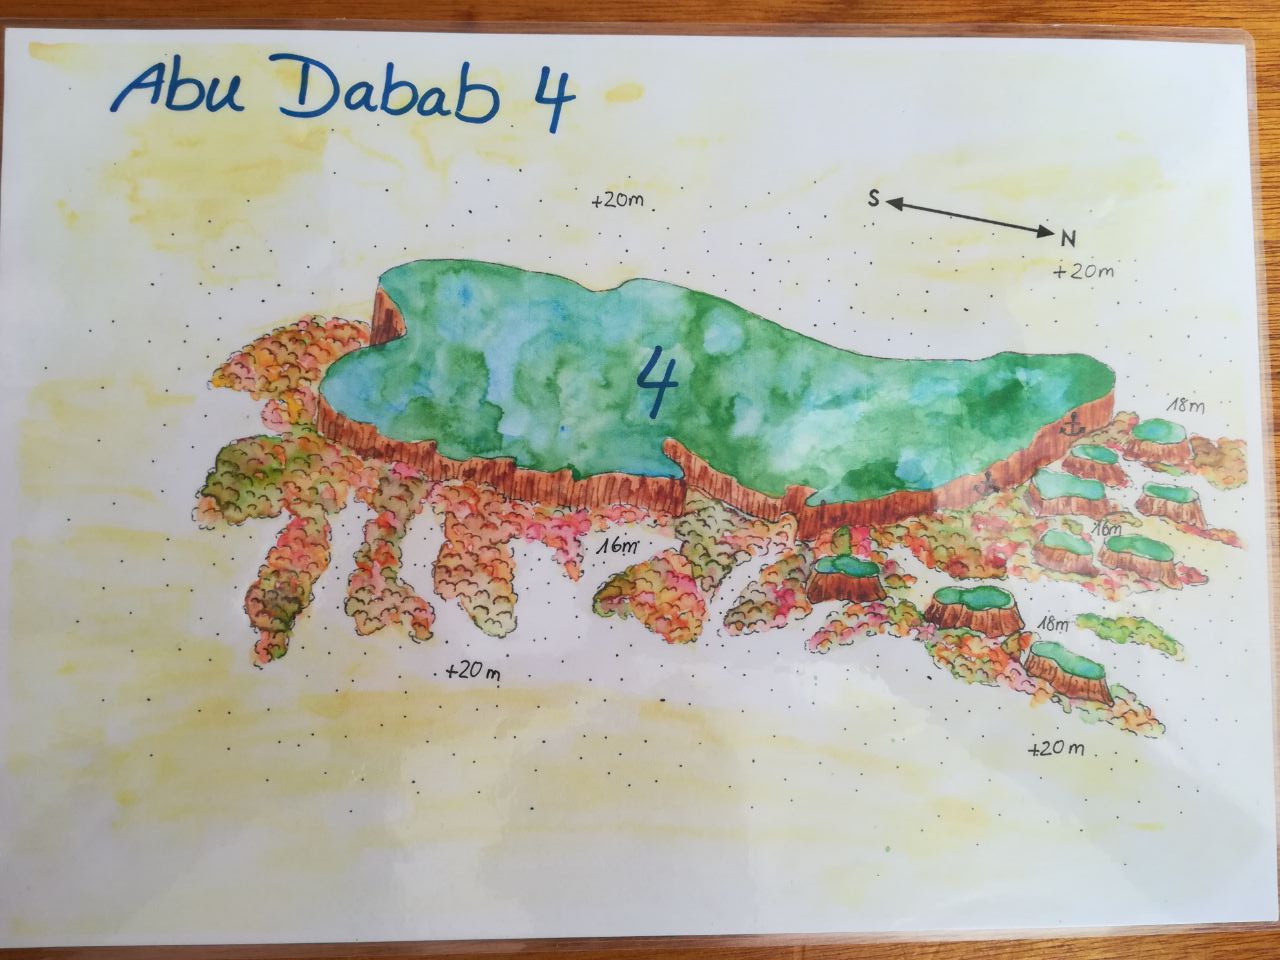 Abu Dabab 4
+20m
S N
+20m
4
18m
16m
16m
18m
+20m
+20m